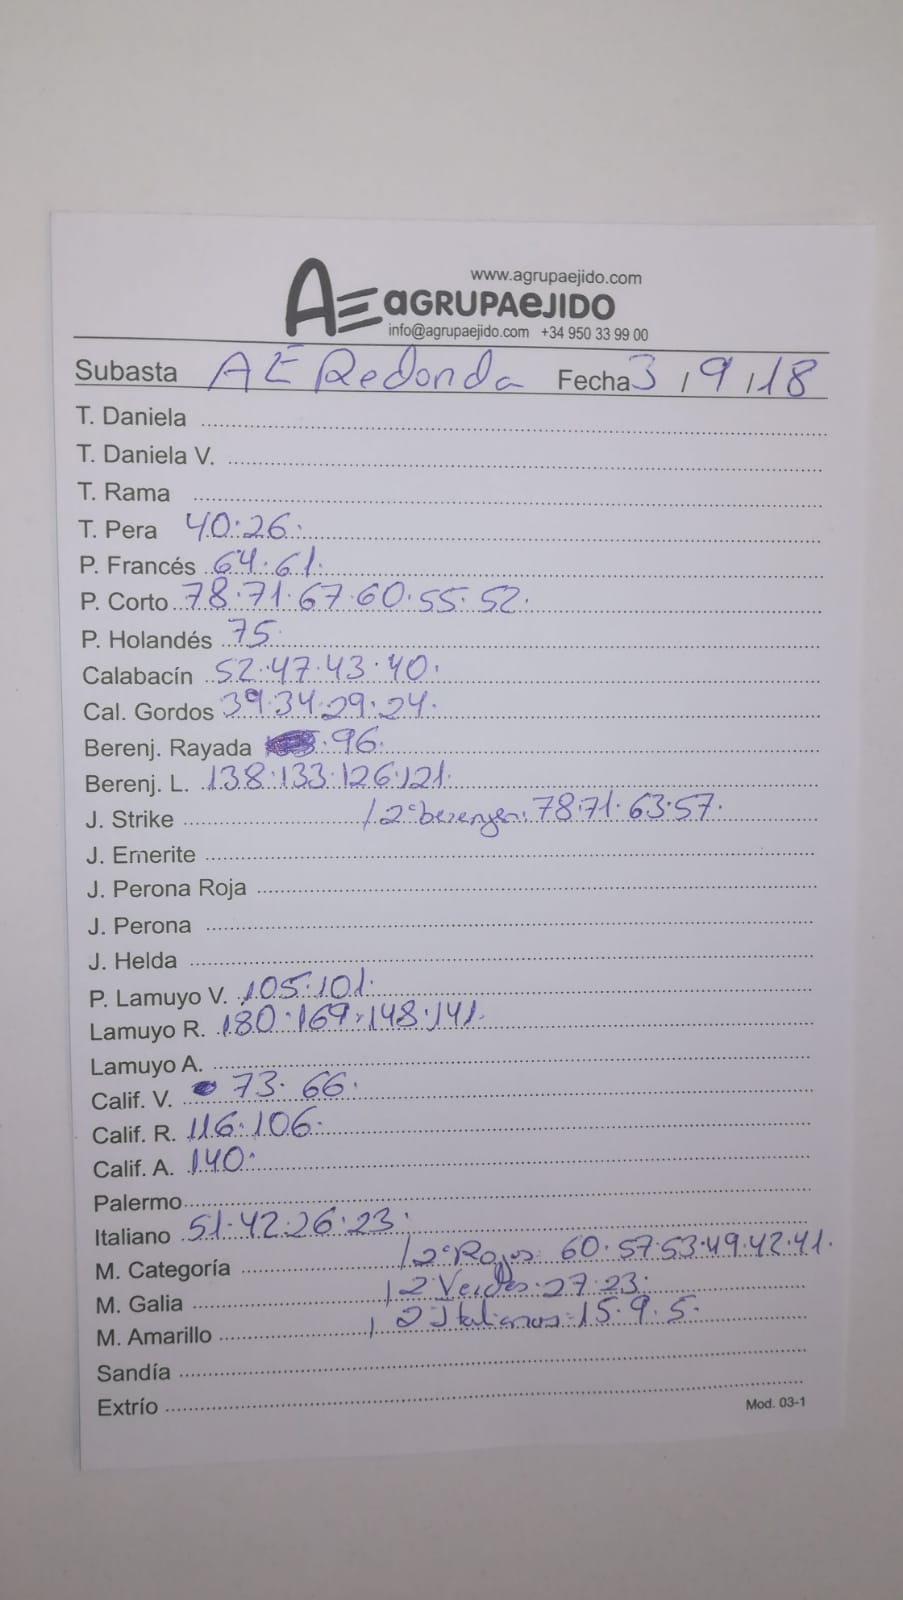 www.agrupaejido.com
AE aGRUPAeJIDO
info@agrupaejido.com +34 950 33 99 00
Subasta AE Redonda Fecha 3 / 9 / 18
T. Daniela
T. Daniela V.
T. Rama
T. Pera 40.26.
P. Francés 64.61.
P. Corto 78.71.67.60.55.52.
P. Holandés 75.
Calabacín 52.47.43.40.
Cal. Gordos 39.34.29.24.
Berenj. Rayada .96.
Berenj. L. 138.133.126.121.
J. Strike / 2ª berengen: 78.71.63.57.
J. Emerite
J. Perona Roja
J. Perona
J. Helda
P. Lamuyo V. 105.101.
Lamuyo R. 180.169.148.141.
Lamuyo A.
Calif. V. 73.66.
Calif. R. 116.106.
Calif. A. 140.
Palermo
Italiano 51.42.26.23.
M. Categoría / 2ª Rojos: 60.57.53.49.42.41.
M. Galia / 2 Verdes.27.23.
M. Amarillo / 2 Italianos:15.9.5.
Sandía
Extrío
Mod. 03-1